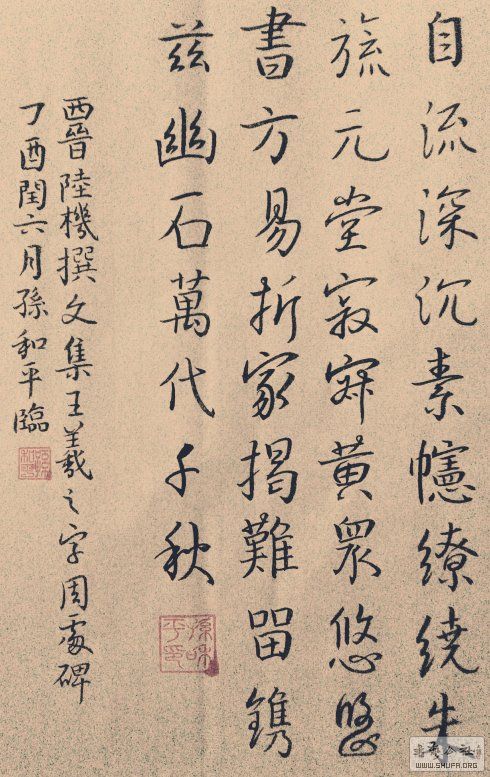 自流深沉素幰繚繞朱
旒元堂寂寂黃眾悠悠
書方易折家揭難留鐫
茲幽石萬代千秋
西晉陸機撰文集王羲之字周處碑
丁酉閏六月孫和平臨
孫和平印
WWW.SHUFA.ORG